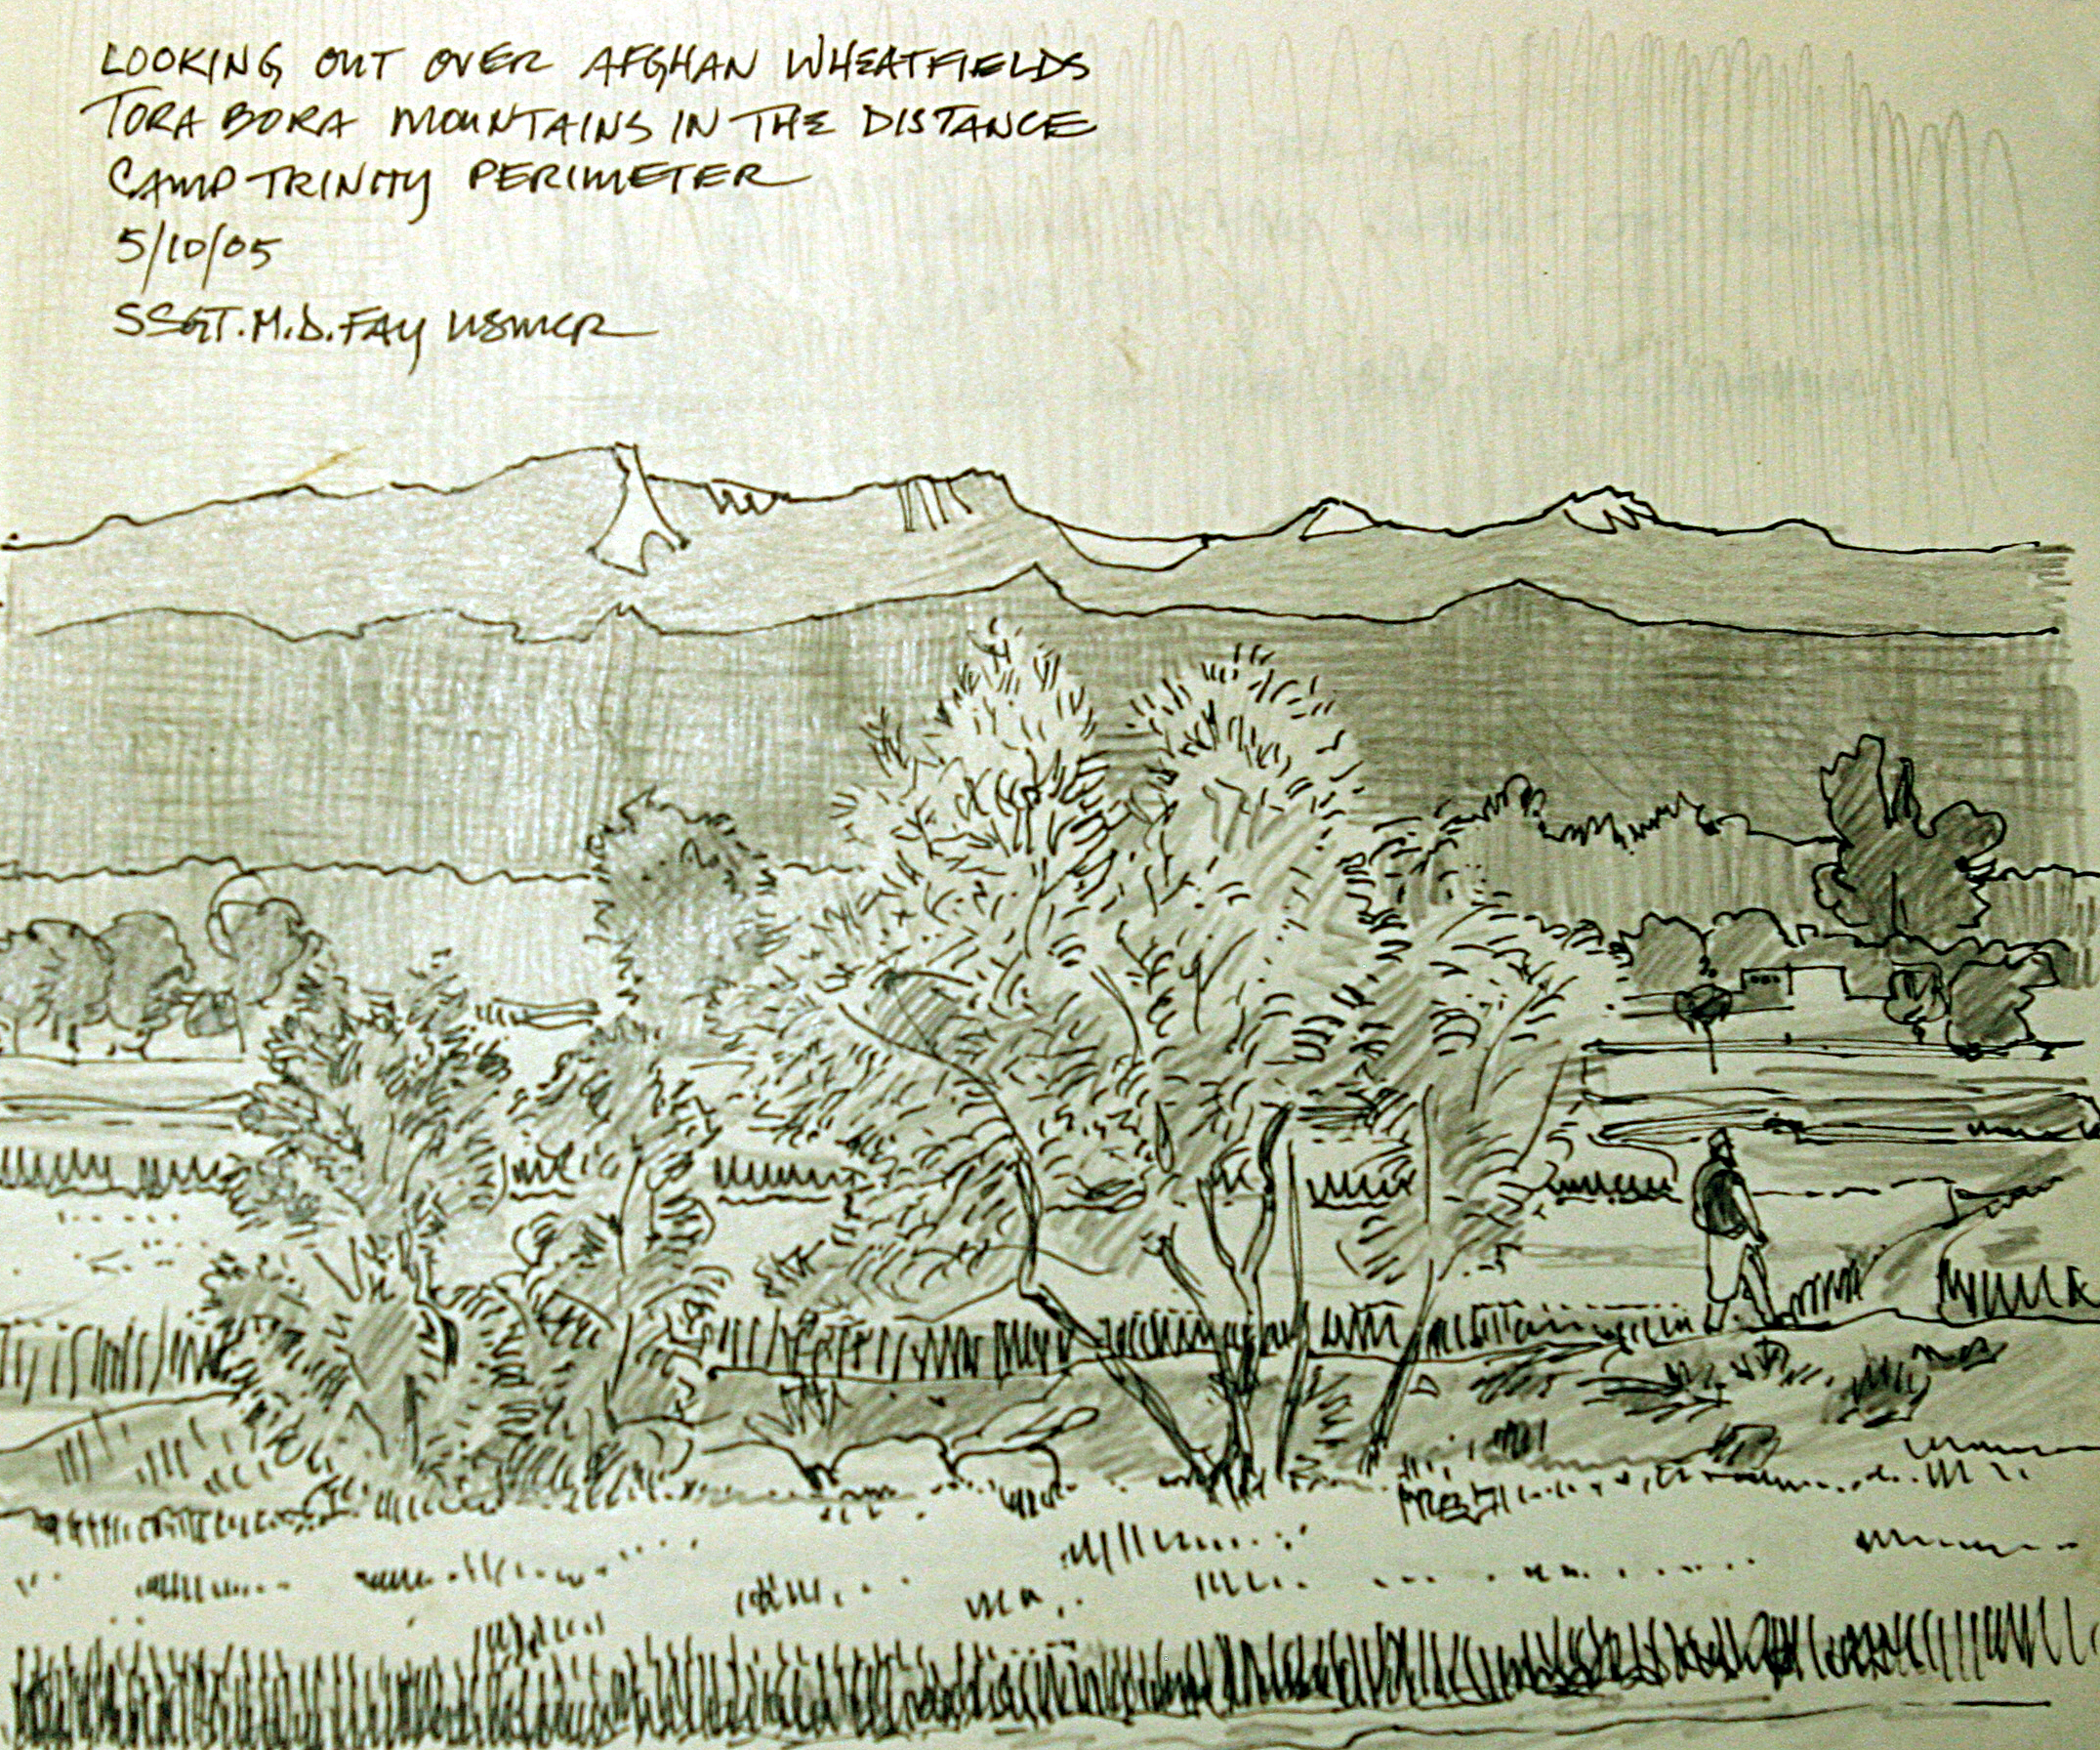 LOOKING OUT OVER AFGHAN WHEATFIELDS
TORA BORA MOUNTAINS IN THE DISTANCE
CAMP TRINITY PERIMETER
5/10/05
SSGT. M.D. FAY USMCR